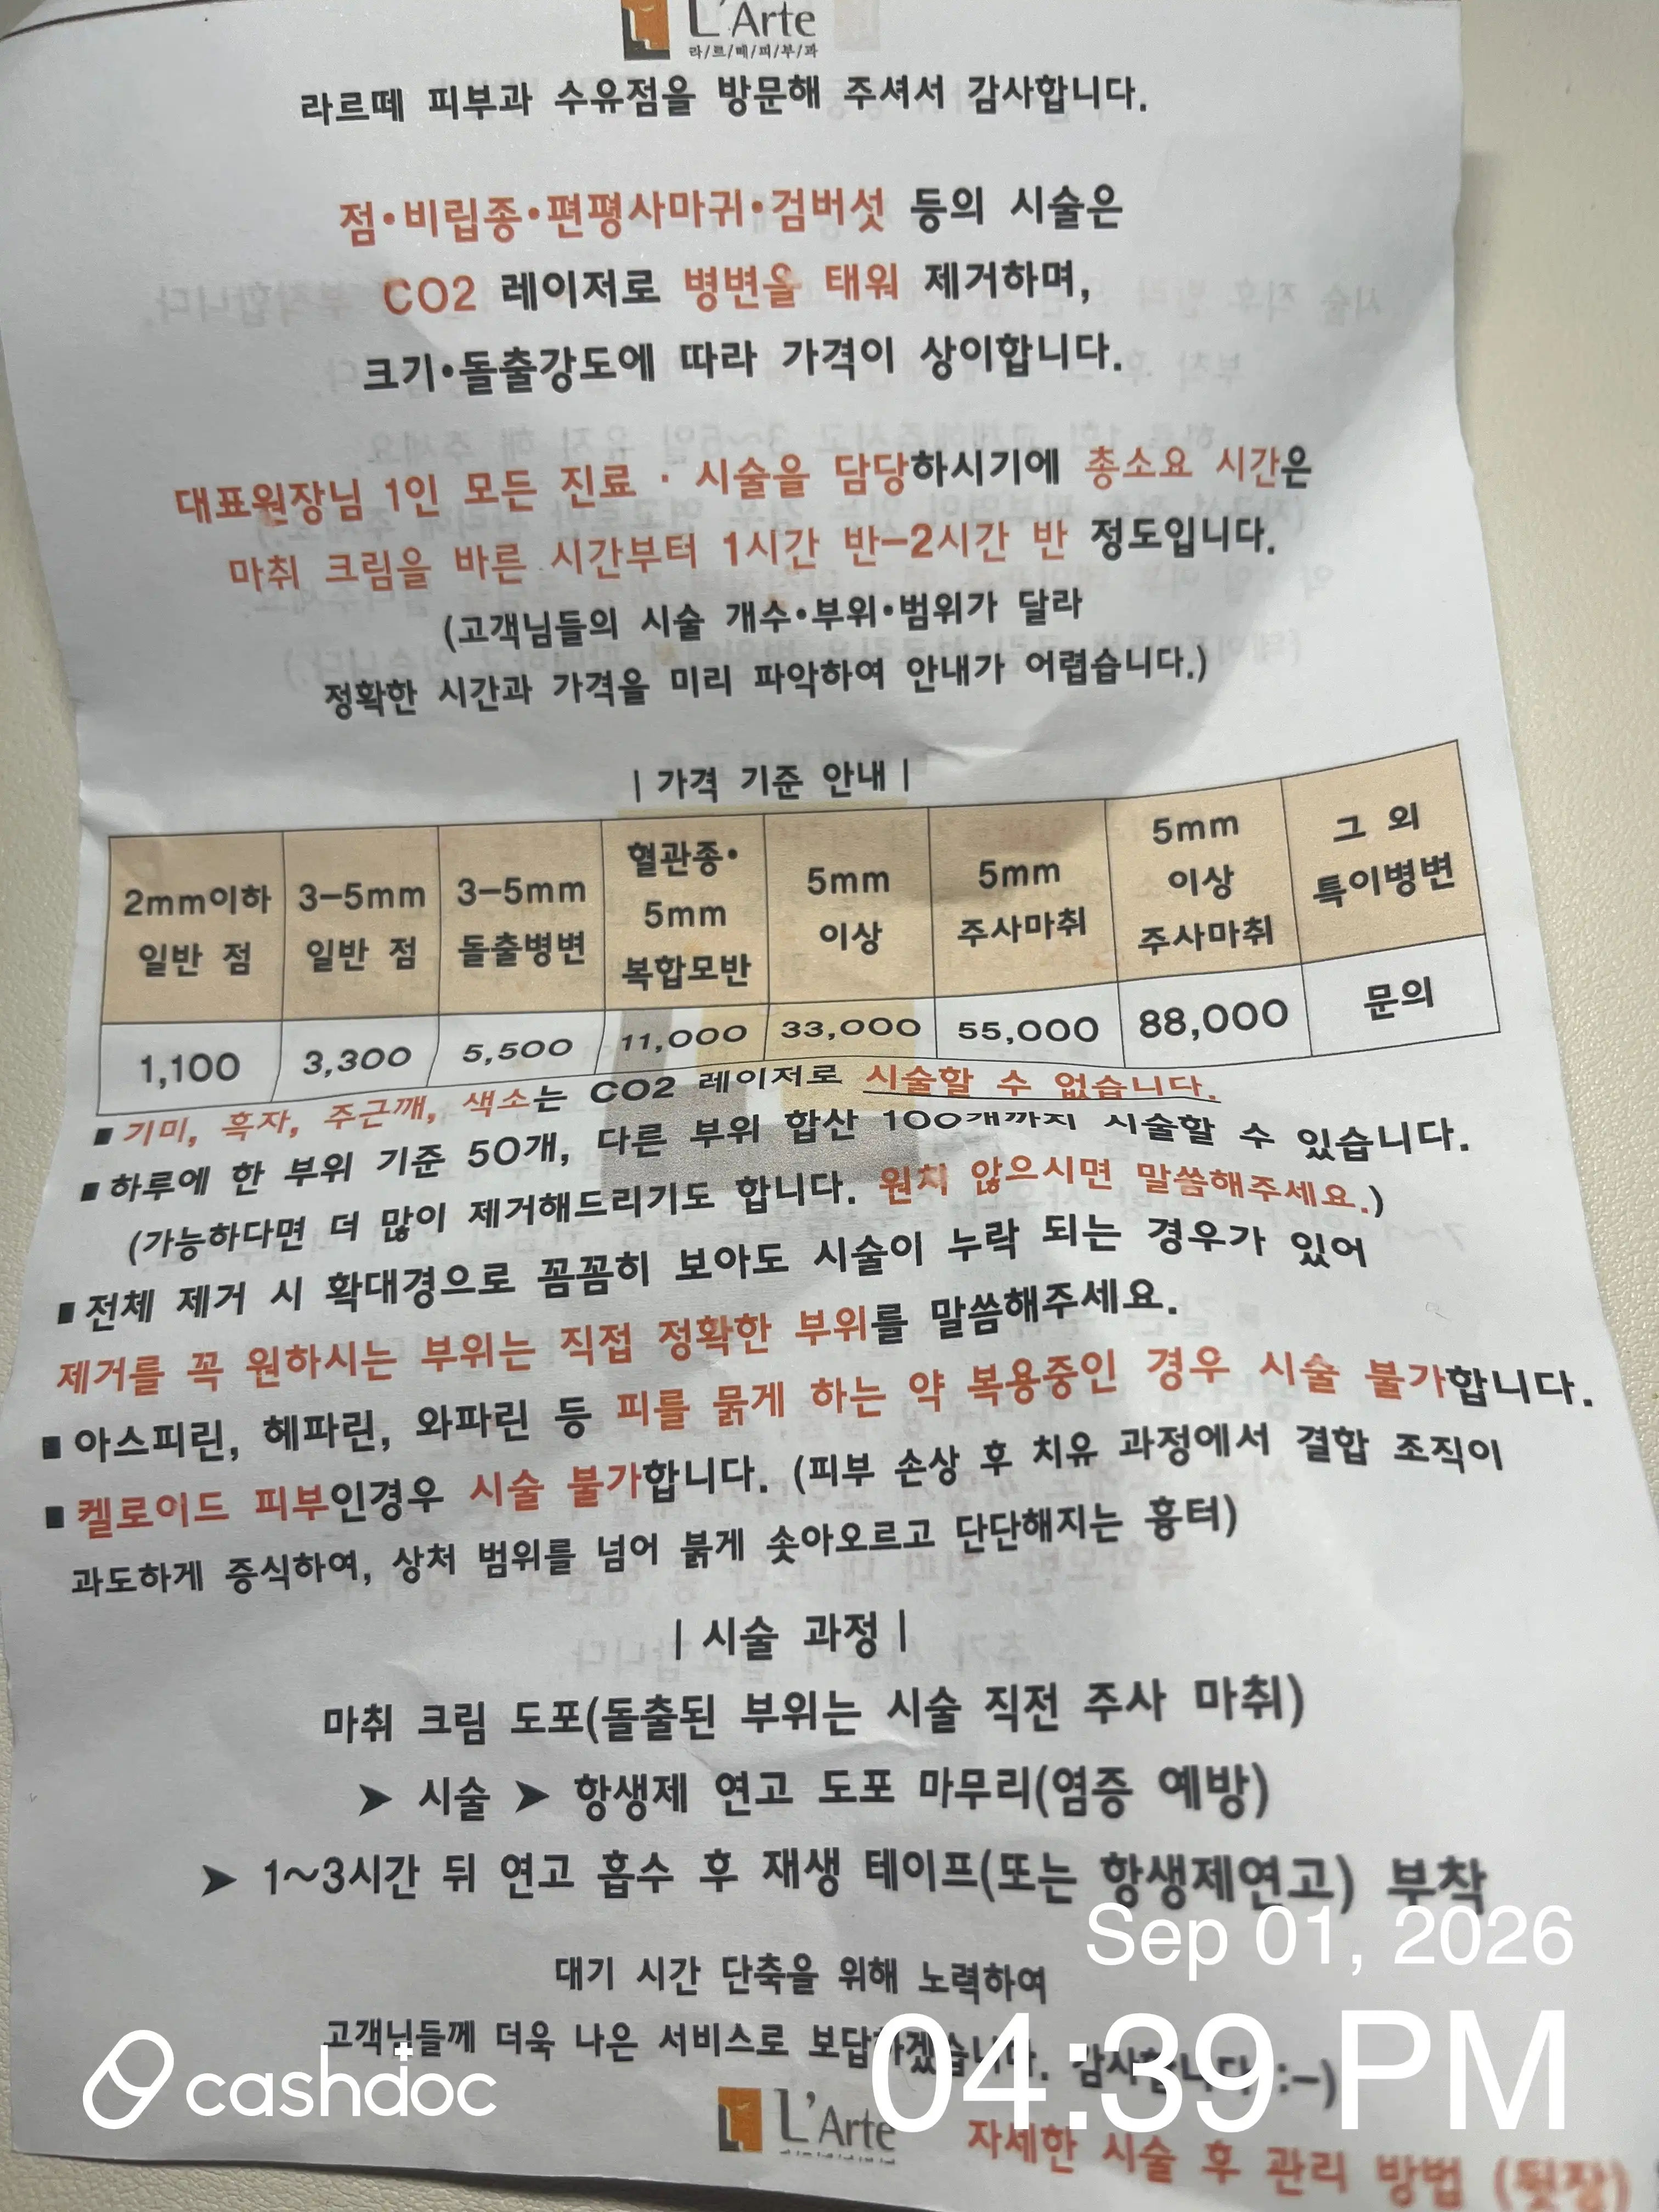 L'Arte
라/르/떼/피/부/과
라르떼 피부과 수유점을 방문해 주셔서 감사합니다.
점•비립종•편평사마귀•검버섯 등의 시술은
CO2 레이저로 병변을 태워 제거하며,
크기•돌출강도에 따라 가격이 상이합니다.
대표원장님 1인 모든 진료 · 시술을 담당하시기에 총소요 시간은
마취 크림을 바른 시간부터 1시간 반-2시간 반 정도입니다.
(고객님들의 시술 개수•부위•범위가 달라
정확한 시간과 가격을 미리 파악하여 안내가 어렵습니다.)
| 가격 기준 안내 |
2mm이하 일반 점 | 3-5mm 일반 점 | 3-5mm 돌출병변 | 혈관종• 5mm 복합모반 | 5mm 이상 | 5mm 주사마취 | 5mm 이상 주사마취 | 그 외 특이병변
1,100 | 3,300 | 5,500 | 11,000 | 33,000 | 55,000 | 88,000 | 문의
■ 기미, 흑자, 주근깨, 색소는 CO2 레이저로 시술할 수 없습니다.
■ 하루에 한 부위 기준 50개, 다른 부위 합산 100개까지 시술할 수 있습니다.
(가능하다면 더 많이 제거해드리기도 합니다. 원치 않으시면 말씀해주세요.)
■ 전체 제거 시 확대경으로 꼼꼼히 보아도 시술이 누락 되는 경우가 있어
제거를 꼭 원하시는 부위는 직접 정확한 부위를 말씀해주세요.
■ 아스피린, 헤파린, 와파린 등 피를 묽게 하는 약 복용중인 경우 시술 불가합니다.
■ 켈로이드 피부인경우 시술 불가합니다. (피부 손상 후 치유 과정에서 결합 조직이
과도하게 증식하여, 상처 범위를 넘어 붉게 솟아오르고 단단해지는 흉터)
| 시술 과정 |
마취 크림 도포(돌출된 부위는 시술 직전 주사 마취)
➤ 시술 ➤ 항생제 연고 도포 마무리(염증 예방)
➤ 1~3시간 뒤 연고 흡수 후 재생 테이프(또는 항생제연고) 부착
대기 시간 단축을 위해 노력하여
고객님들께 더욱 나은 서비스로 보답하겠습니다. 감사합니다 :-)
L'Arte
자세한 시술 후 관리 방법 (뒷장)
Sep 01, 2026
04:39 PM
cashdoc